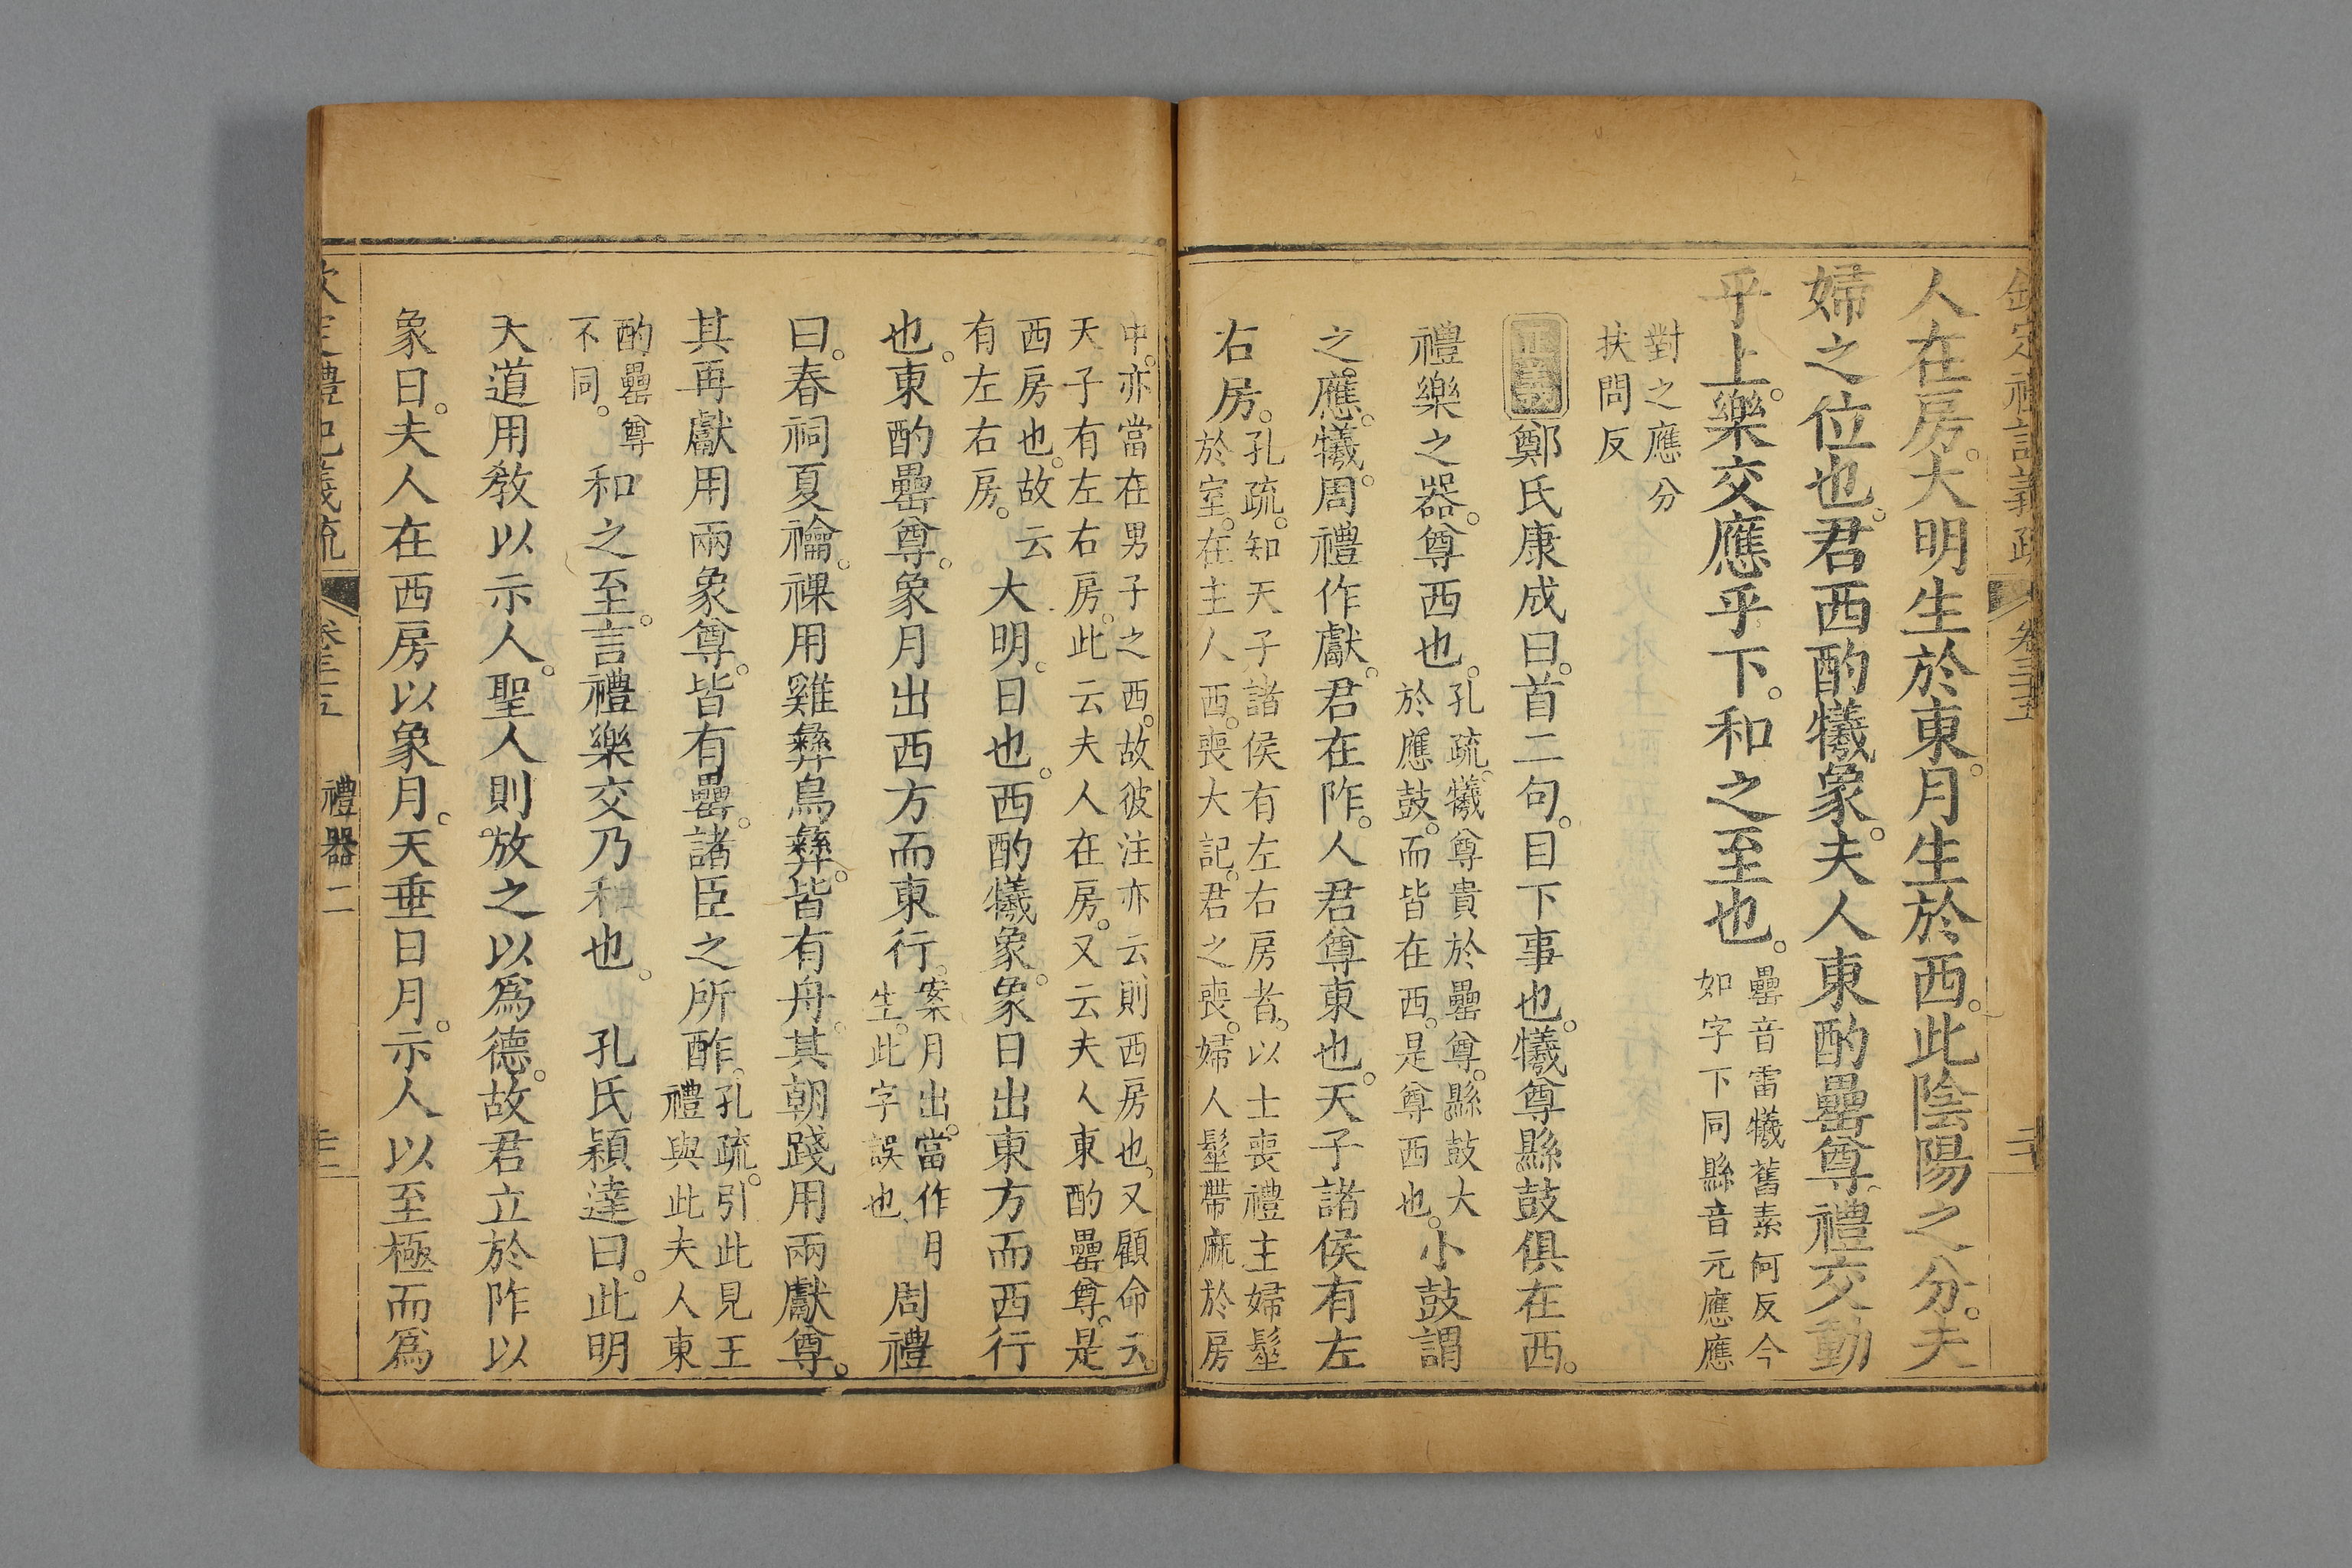 欽定禮記義疏 卷三十五
人在房。大明生於東。月生於西。此陰陽之分。夫
婦之位也。君西酌犧象。夫人東酌罍尊。禮交動
乎上。樂交應乎下。和之至也。
罍音雷犧舊素何反今
如字下同縣音元應應
對之應分
扶問反
正義鄭氏康成曰。首二句。目下事也。犧尊縣鼓俱在西。
禮樂之器。尊西也。
孔疏。犧尊貴於罍尊。縣鼓大
於應鼓。而皆在西。是尊西也。
小鼓謂
之應。犧。周禮作獻。君在阼。人君尊東也。天子諸侯有左
右房。
孔疏。知天子諸侯有左右房者。以士喪禮主婦髽
於室。在主人西。喪大記。君之喪。婦人髽帶麻於房
中。亦當在男子之西。故彼注亦云則西房也。又顧命云。
天子有左右房。此云夫人在房。又云夫人東酌罍尊。是
西房也。故云
有左右房。
大明。日也。西酌犧象。象日出東方而西行
也。東酌罍尊。象月出西方而東行。
案月出。當作月
生。此字誤也
周禮
曰。春祠夏禴。祼用雞彝鳥彝。皆有舟。其朝踐用兩獻尊。
其再獻用兩象尊。皆有罍。諸臣之所酢。
孔疏。引此見王
禮與此夫人東
酌罍尊
不同。
和之至。言禮樂交乃和也。 孔氏穎達曰。此明
天道用教以示人。聖人則放之以爲德。故君立於阼以
象日。夫人在西房以象月。天垂日月。示人以至極而爲
欽定禮記義疏 卷三十五 禮器二